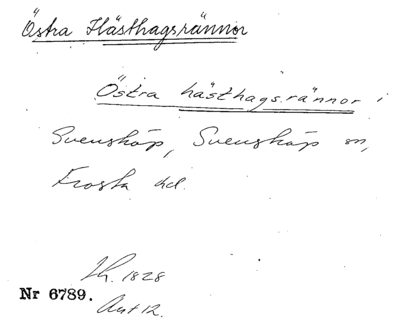 Östra Hästhagsrännor
Östra hästhagsrännor i
Svensköp, Svensköp sn,
Frosta hd.
Lh. 1828
Nr 6789.
Akt 12.